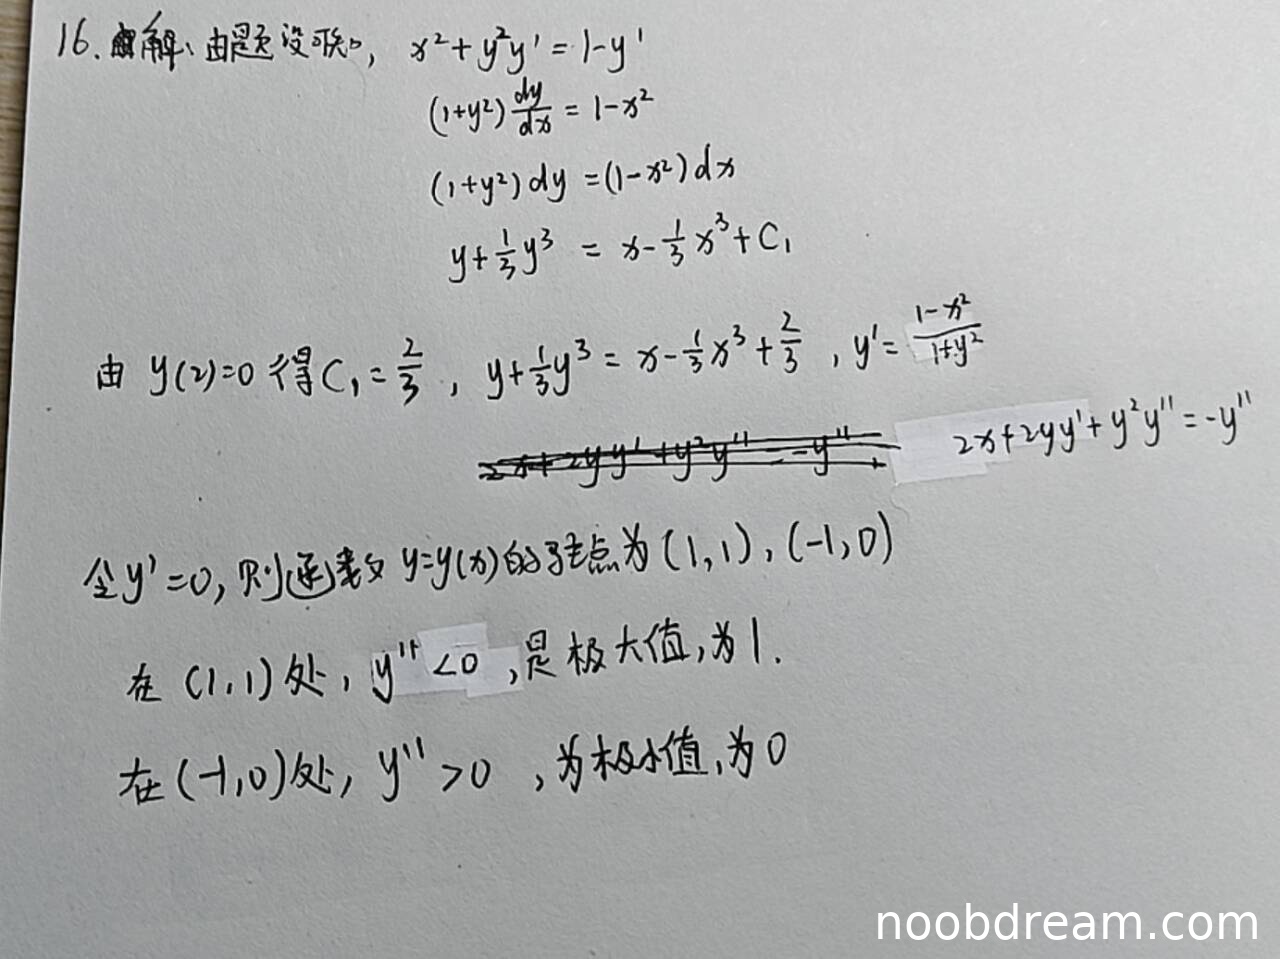 16. 解、由题设可知, x²+y²y'=1-y'
(1+y²)dy/dx=1-x²
(1+y²)dy=(1-x²)dx
y+1/3y³=x-1/3x³+C₁
由 y(2)=0 得 C₁=2/3, y+1/3y³=x-1/3x³+2/3, y'=(1-x²)/(1+y²)
2x+2yy'+y²y''=-y''
2x+2yy'+y²y''=-y''
令y'=0, 则函数 y=y(x)的驻点为(1,1),(-1,0)
在(1,1)处, y''<0,是极大值,为1.
在(-1,0)处, y''>0,为极小值,为0
noobdream.com